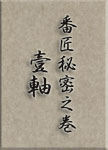 番匠秘密之巻
壹軸